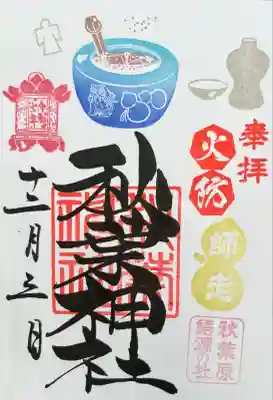 奉拝
火防
師走
秋葉原
語源の社
秋葉神社
十二月三日